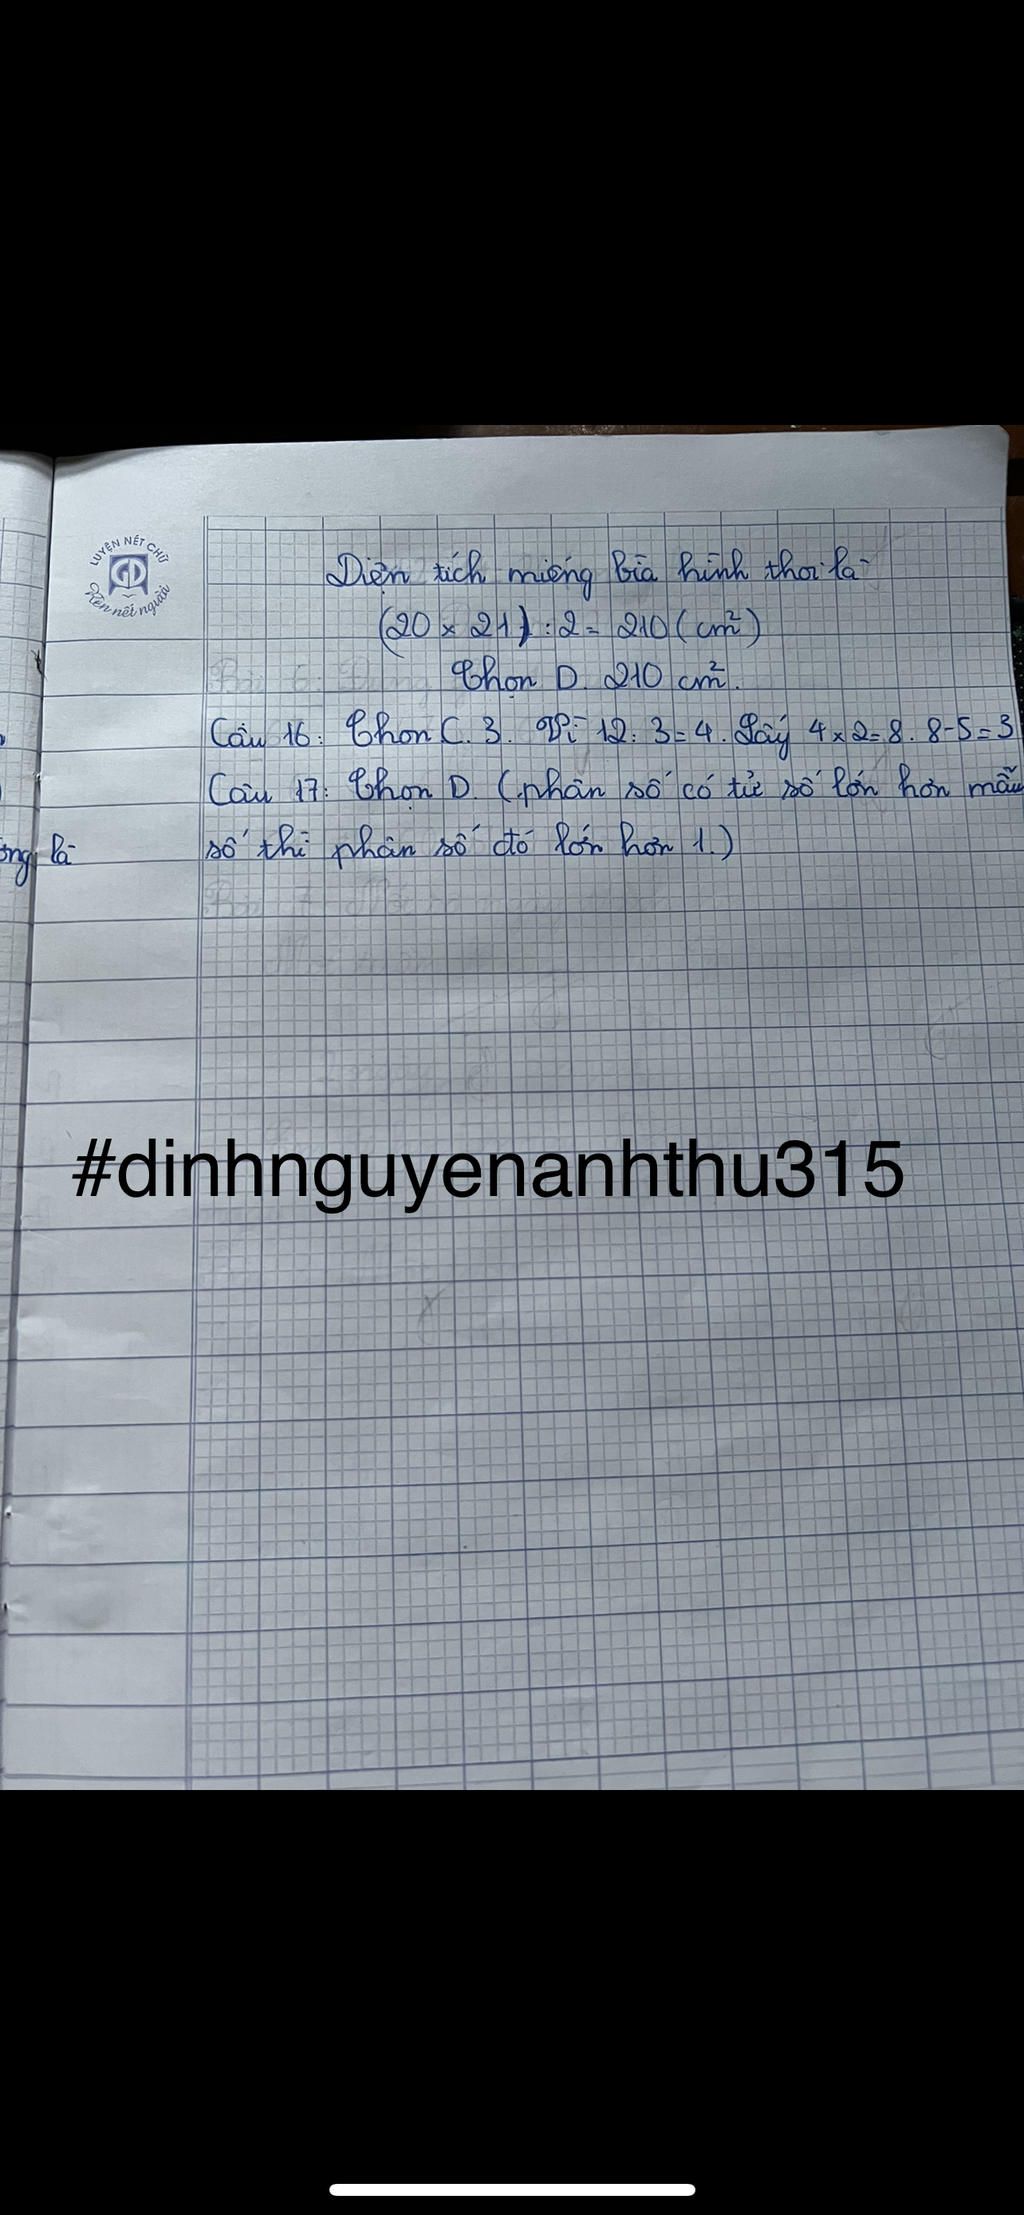 LUYỆN NÉT CHỮ
GD
Rèn nết người
Diện tích miếng bìa hình thoi là
(20 × 21) : 2 = 210 (cm²)
Chọn D. 210 cm².
Câu 16: Chọn C. 3. Vì 12 : 3 = 4. Lấy 4 × 2 = 8. 8 - 5 = 3
Câu 17: Chọn D. (phân số có tử số lớn hơn mẫu
ông là
số thì phân số đó lớn hơn 1.)
#dinhnguyenanhthu315